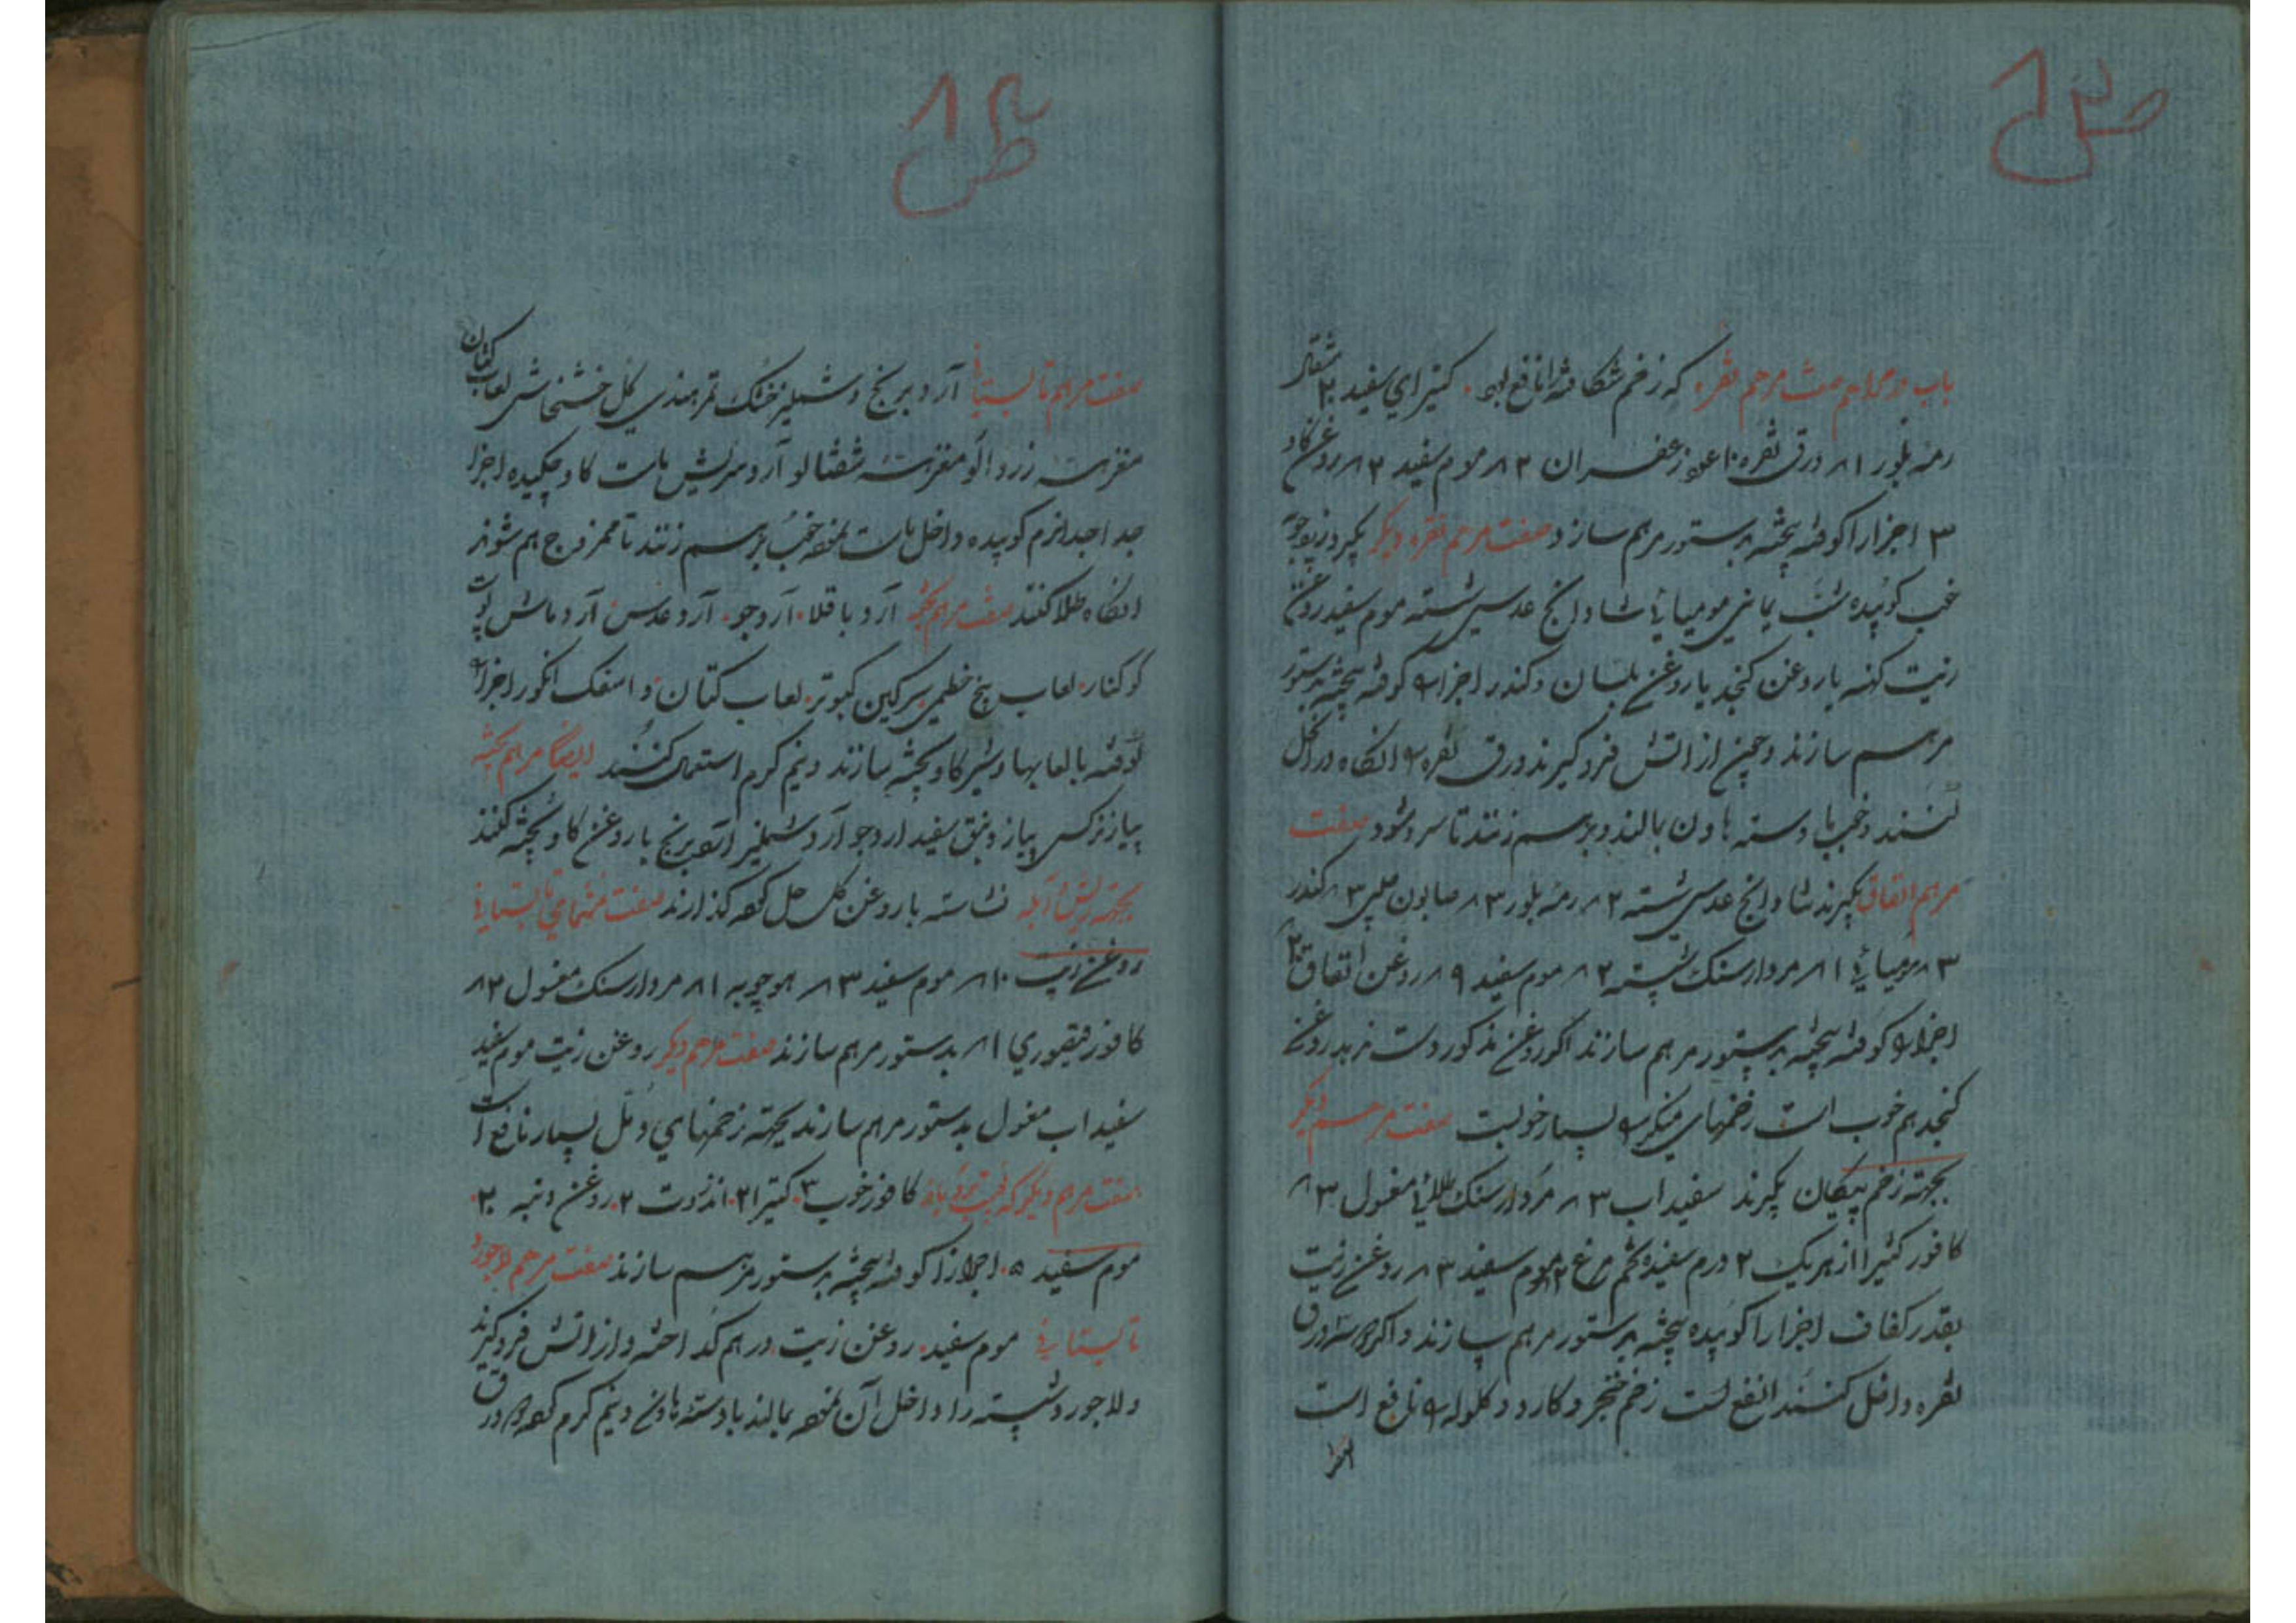 ص ۸۳
باب در مراهم صفت مرهم نقره که زخم شکافته را نافع بود کتیرای سفید ۲ مثقال
رمه بلور ۱ ورق نقره ۱۰ عدد زعفران ۲ موم سفید ۲ روغن کاو
۳ اجزا را کوفته بیخته بدستور مرهم سازد صفت مرهم نقره دیکر بکیرد زردچوبه
خوب کوبیده شب یمانی مومیائی شادانج عدسی شسته موم سفید روغن
زیت کهنه یا روغن کنجد یا روغن بلسان و کندر اجزا را کوفته بیخته بدستور
مرهم سازند و چون از اتش فرو کیرند ورق نقره را انکاه در داخل
کنند و خوب با دسته هاون بمالند و برهم زنند تا سرد شود صفت
مرهم اتفاق بکیرند شادانج عدسی شسته ۲ رمه بلور ۳ صابون حلبی ۳ کندر
۳ مومیائی ۱ مردارسنک شسته ۲ موم سفید ۹ روغن اتفاق ۲۰
اجزا را کوفته بیخته بدستور مرهم سازند اکر روغن مذکور دست ندهد روغن
کنجد هم خوب است زخمهای منکر را بسیار خوبست صفت مرهم دیکر
بجهته زخم پیکان بکیرند سفیداب ۳ مردارسنک طلائی مغسول ۳
کافور کتیرا از هر یک ۲ درم سفیده تخم مرغ ۲ موم سفید ۳ روغن زیت
بقدر کفاف اجزا را کوبیده بیخته بدستور مرهم سازند و اکر ورق
نقره داخل کنند انفع است زخم خنجر و کارد و کلوله را نافع است
ص ۸۴
صفت مرهم تابستانی آرد برنج و شملیز خشک تمر هندی کل خشخاش لعاب کتان
مغز هسته زردالو مغز هسته شفتالو آرد سریش ماست کاو چکیده اجزا
جدا جدا نرم کوبیده داخل ماست نموده خوب برهم زنند تا ممزوج هم شوند
انکاه طلا کنند صفت مرهم پخته آرد باقلا آرد جو آرد عدس آرد ماش پوست
کوکنار لعاب بیخ خطمی سرکین کبوتر لعاب کتان و اسفک انکور اجزا را
کوفته با لعابها و شیر کاو پخته سازند و نیم کرم استعمال کنند ایضا مرهم پخته
پیاز نرکس پیاز و نبق سفید ارد جو آرد شملیز آرد برنج با روغن کاو پخته کنند
بجهته ریش آبله نشاسته با روغن کل حل کرده کذارند صفت تابستانی
روغن زیت ۱۰ موم سفید ۳ هوچوبه ۱ مردارسنک مغسول ۲
کافور قیصوری ۱ بدستور مرهم سازند صفت مرهم دیکر روغن زیت موم سفید
سفیداب مغسول بدستور مرهم سازند بجهته زخمهای دمل بسیار نافع است
صفت مرهم دیکر که کافور خوب ۳ کتیرا ۲ انزروت ۲ روغن دنبه ۲۰
موم سفید ۵ اجزا را کوفته بیخته بدستور مرهم سازند صفت مرهم لاجورد
تابستانی موم سفید روغن زیت درهم کداخته و از اتش فرو کیرند
و لاجورد شسته را داخل آن نموده بمالند با دسته هاون و نیم کرم